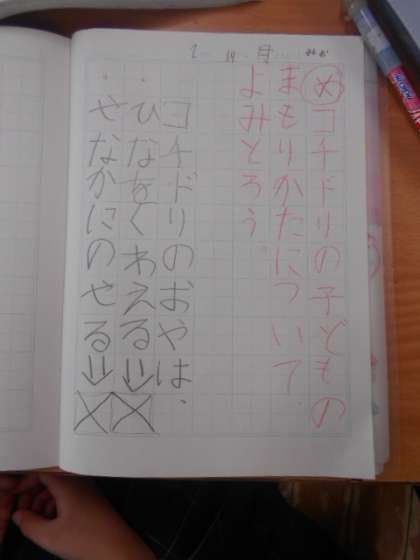 2 19 月
め コチドリの子どもの
まもりかたについて、
よみとろう。
コチドリのおやは、
・ひなをくわえる⇓✕
・せなかにのせる⇓✕